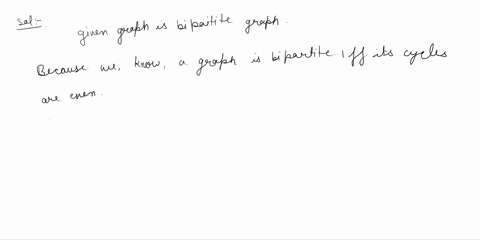 Sol:- given graph is bipaitite graph.
Because we, know, a graph is bipartite iff its cycles
are even.